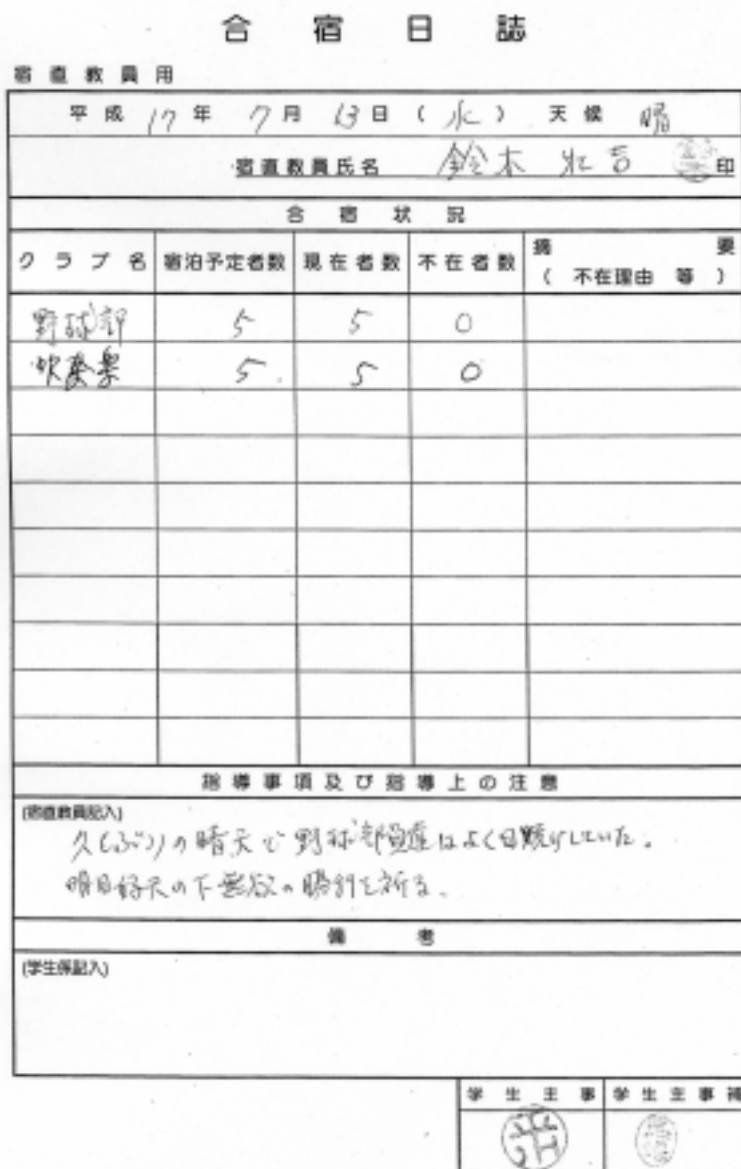 合宿日誌
宿直教員用
平成 17 年 7 月 13 日 ( 水 ) 天候 晴
宿直教員氏名 鈴木 壮吉 印
合宿状況
クラブ名 宿泊予定者数 現在者数 不在者数 摘要 ( 不在理由 等 )
野球部 5 5 0
吹奏楽 5 5 0
指導事項及び指導上の注意
(宿直教員記入)
久しぶりの晴天で野球部員達はよく日焼けしていた。
明日好天の下無欲の勝利を祈る。
備考
(学生係記入)
学生主事 学生主事補